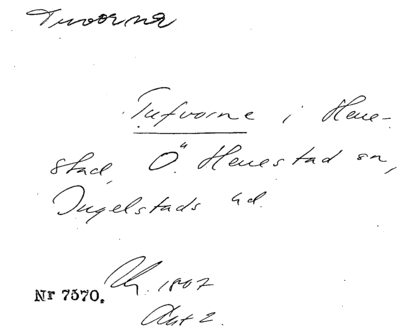 Tuvorna
Tufvorne i Hene-
stad, Ö. Henestad sn,
Ingelstads hd.
Nr 7570. 1807
Akt 2.